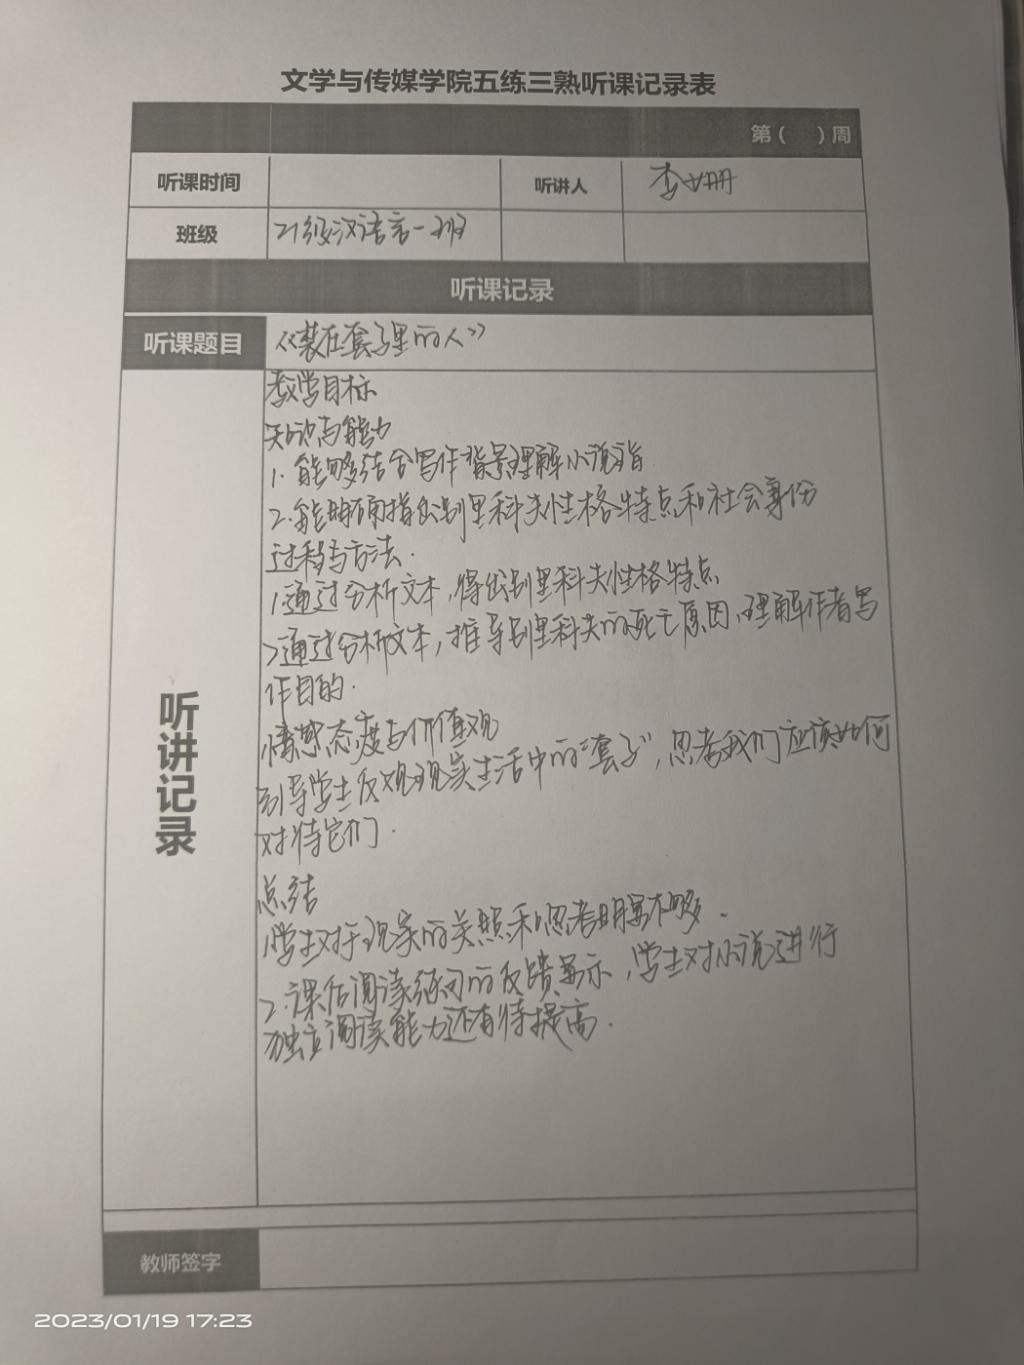 文学与传媒学院五练三熟听课记录表
第（ ）周
听课时间 听讲人 李山册
班级 21级汉语言一班
听课记录
听课题目 《装在套子里的人》
听讲记录
教学目标
知识与能力
1. 能够结合写作背景理解小说主旨
2. 能明确指出别里科夫性格特点和社会身份
过程与方法.
1.通过分析文本，得出别里科夫性格特点
2通过分析文本，推导别里科夫的死亡原因,理解作者写
作目的.
情感态度与价值观
引导学生反观现实生活中的“套子”，思考我们应该如何
对待它们.
总结
1学生对于现实的关照和思考明显不够.
2.课后阅读练习的反馈显示，学生对小说进行
独立阅读能力还有待提高.
教师签字
2023/01/19 17:23